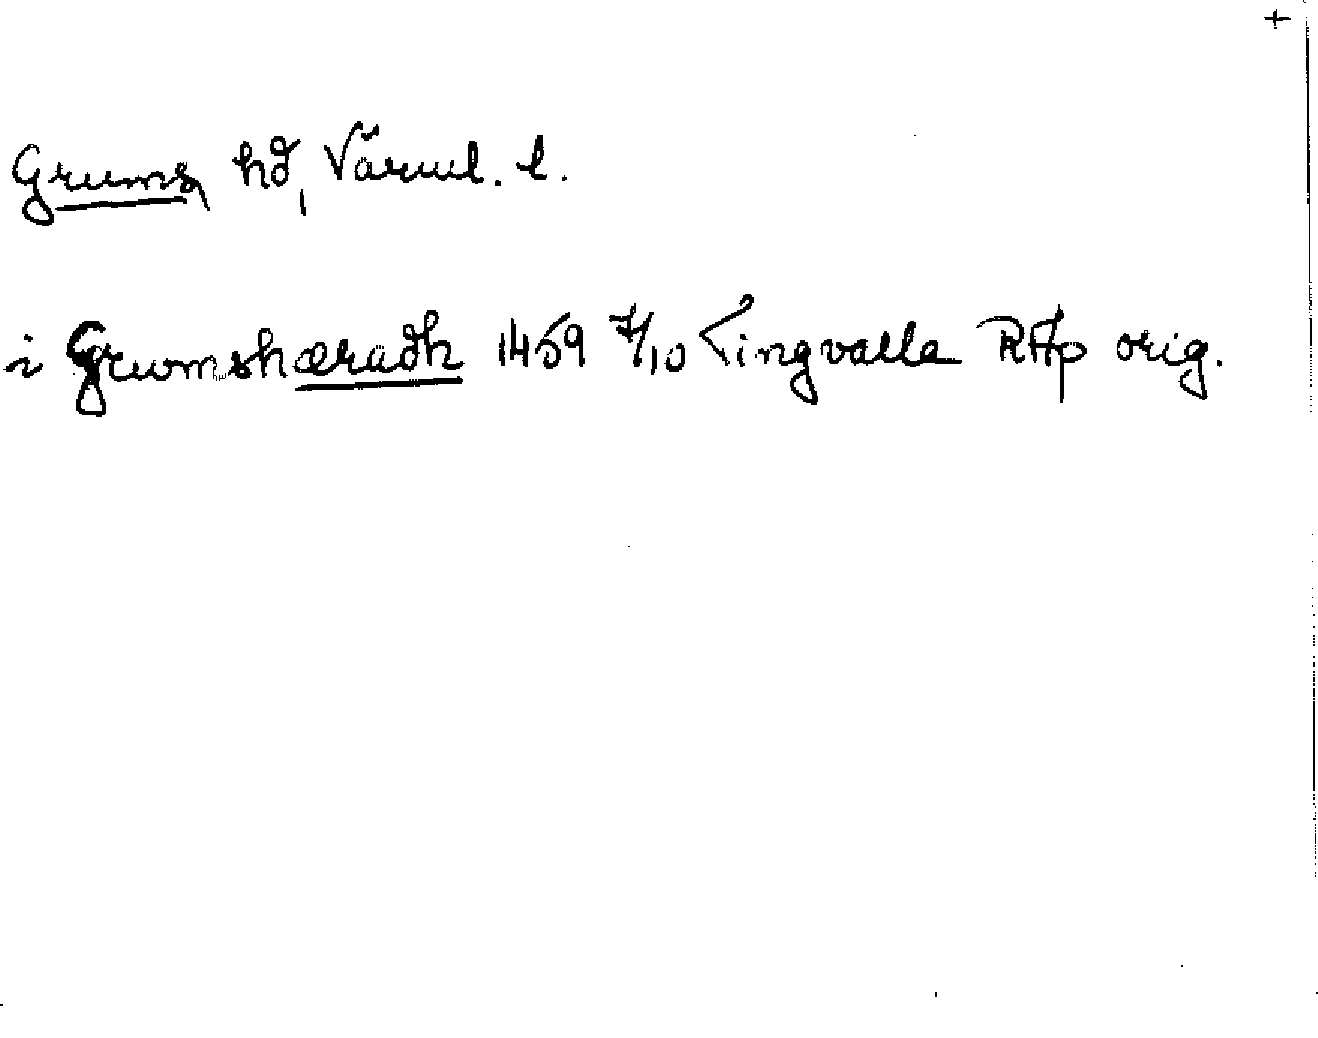 +
Grums hd, Värml. l.
i Grumshæradh 1459 7/10 Lingvalla RAp orig.